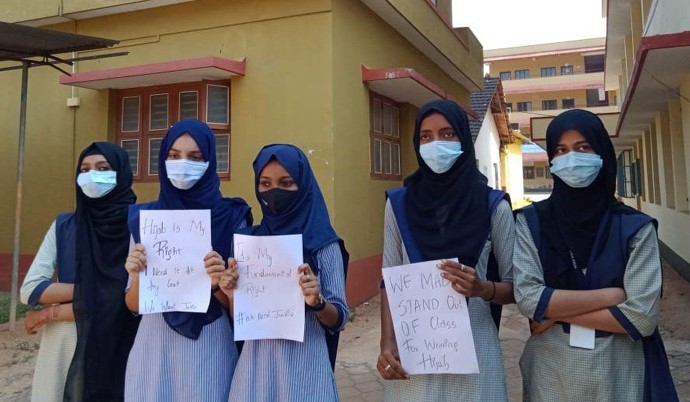 Hijab Is My
Right
I Need it At
My
We Want Justice
Is My
Fundamental
Right
#We Need Justice
WE MADE
STAND OUT
OF Class
For Wearing
Hijab